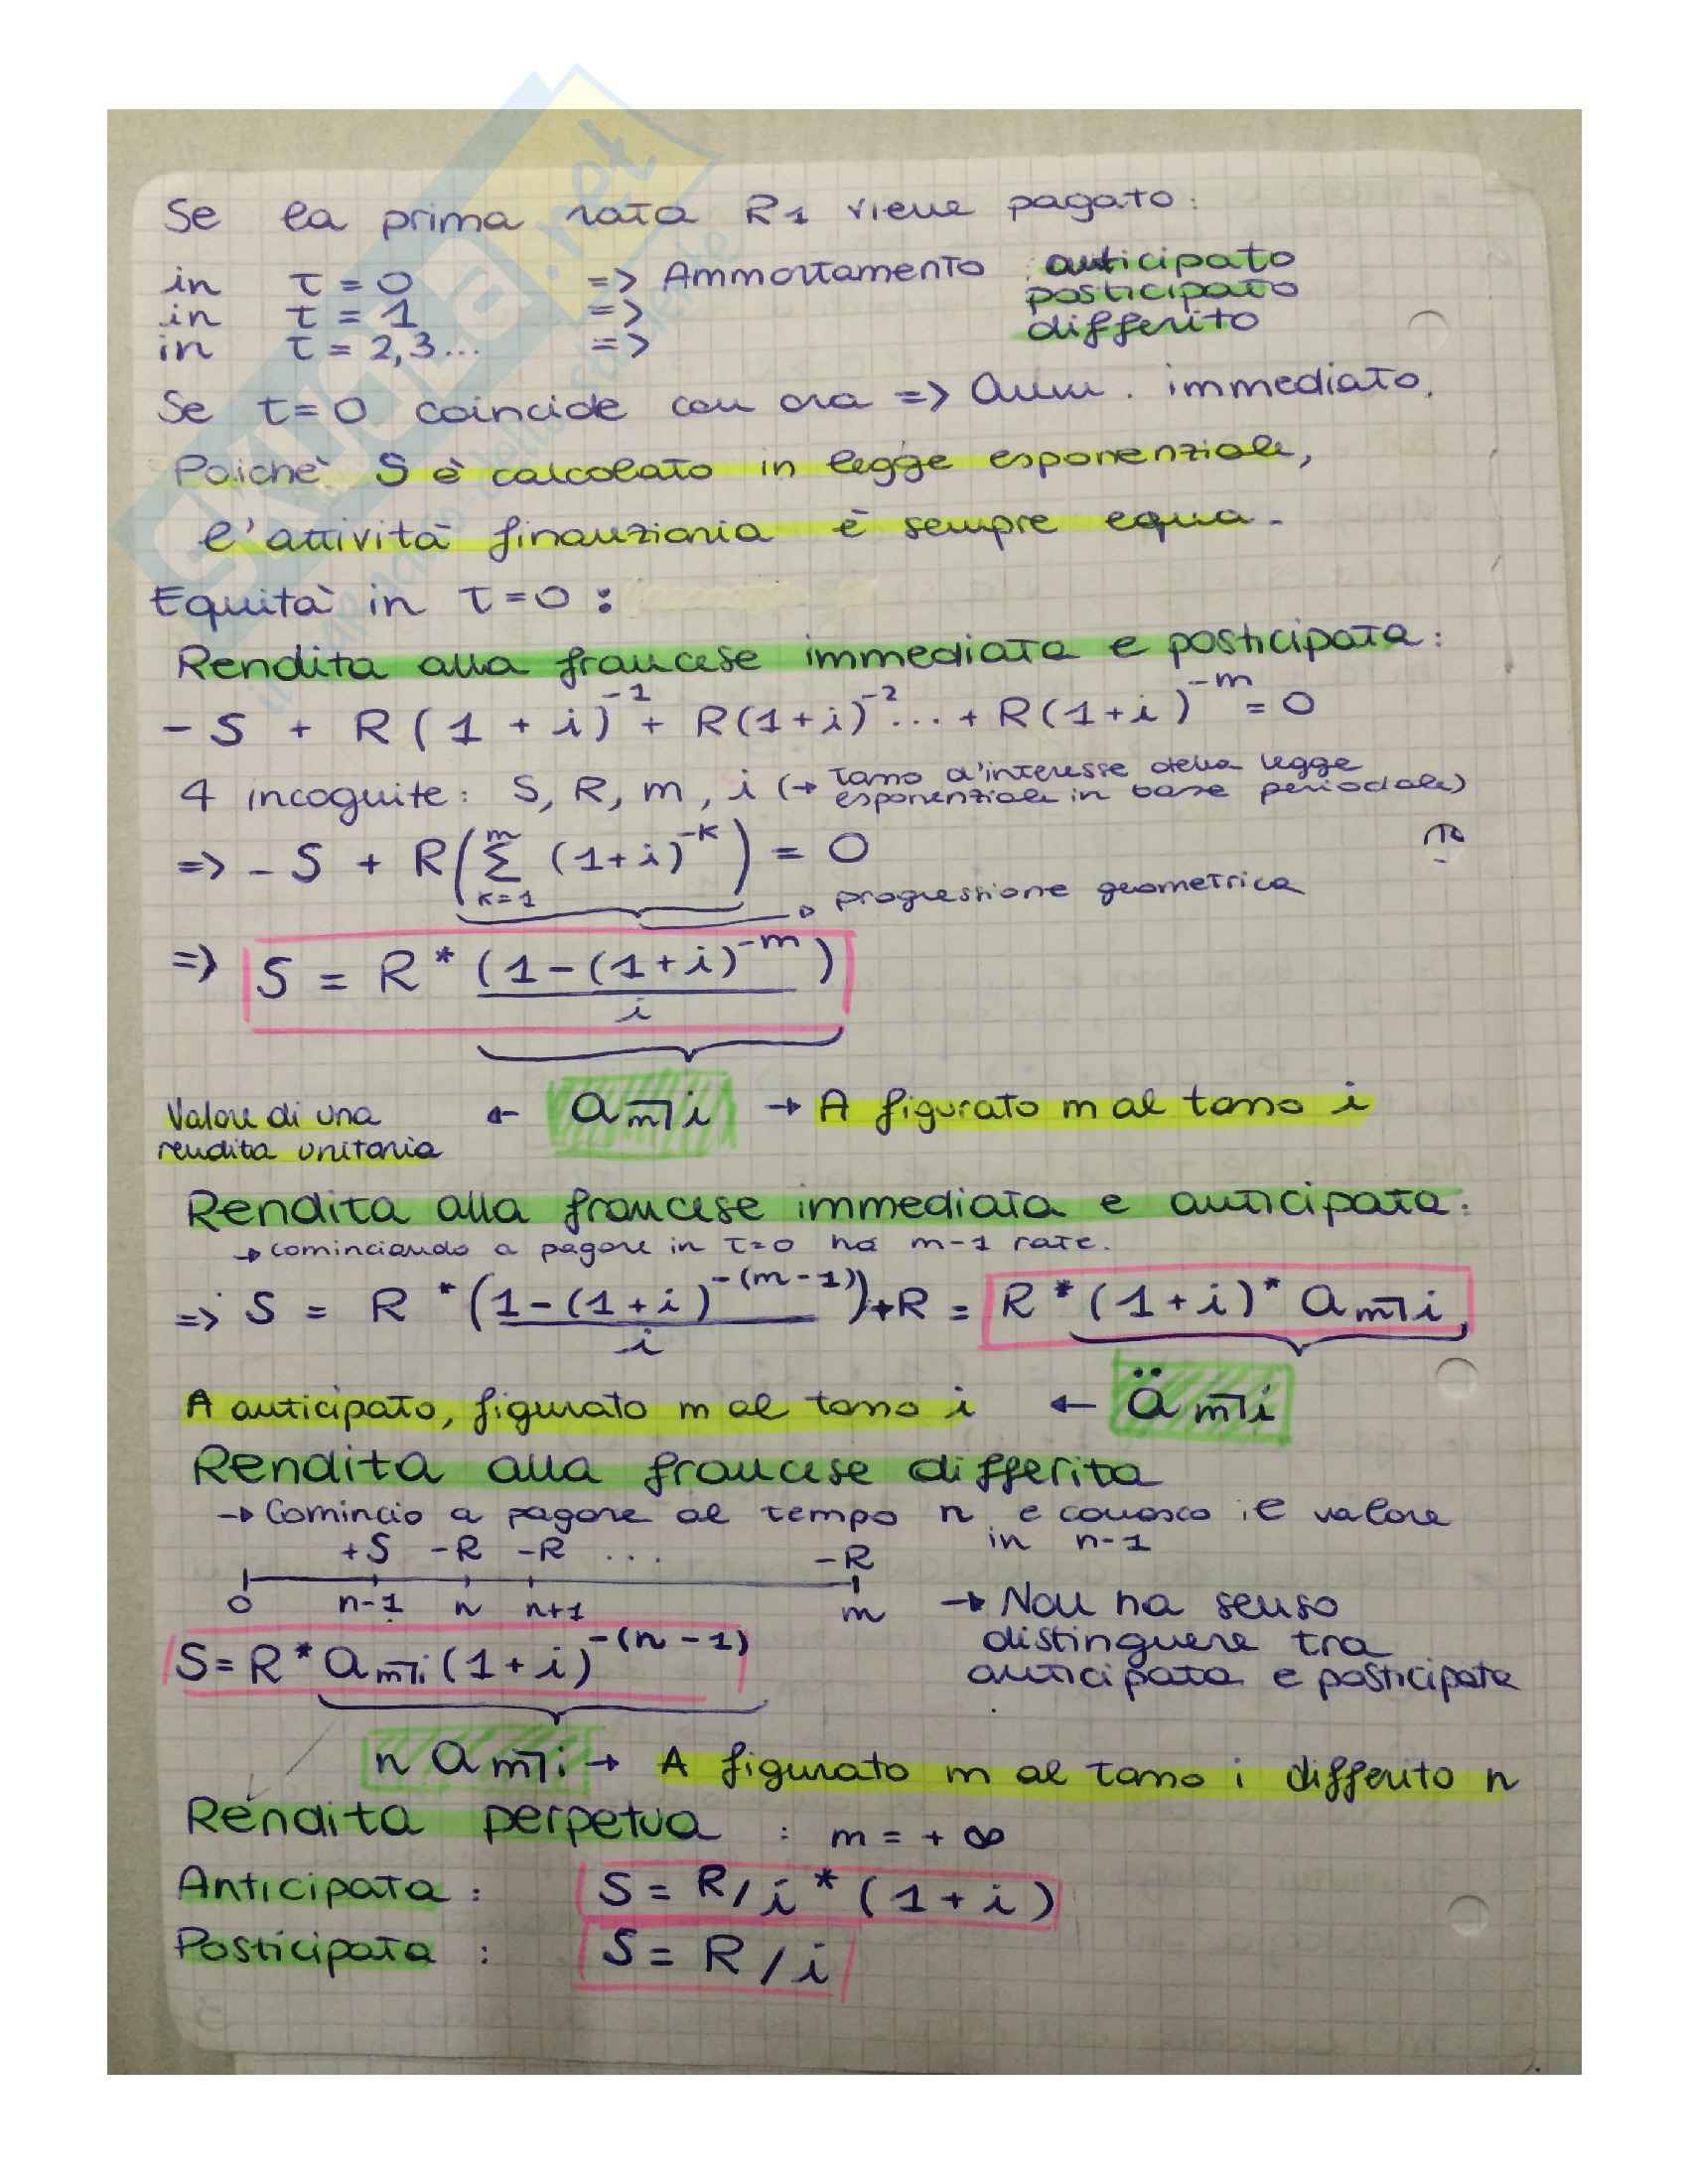 Se la prima rata R1 viene pagato:
in τ = 0 => Ammortamento : anticipato
in τ = 1 => posticipato
in τ = 2,3... => differito
Se τ=0 coincide con ora => amm. immediato.
Poichè S è calcolato in legge esponenziale,
l'attività finanziaria è sempre equa.
Equità in τ=0 :
Rendita alla francese immediata e posticipata:
-S + R(1+i)^-1 + R(1+i)^-2 ... + R(1+i)^-m = 0
4 incognite: S, R, m, i (→ tasso d'interesse della legge
esponenziale in base periodale)
=> -S + R(∑ k=1 m (1+i)^-k) = 0
→ progressione geometrica
=> S = R * (1-(1+i)^-m) / i
Valore di una ← a m̅| i → A figurato m al tasso i
rendita unitaria
Rendita alla francese immediata e anticipata:
→ cominciando a pagare in τ=0 ha m-1 rate.
=> S = R * (1-(1+i)^-(m-1) / i) + R = R * (1+i) * a m̅| i
A anticipato, figurato m al tasso i ← ä m̅| i
Rendita alla francese differita
→ Comincio a pagare al tempo n e conosco il valore
in n-1
+S -R -R ... -R
0 n-1 n n+1 m
→ Non ha senso
distinguere tra
anticipata e posticipata
S = R * a m̅| i (1+i)^-(n-1)
n a m̅| i → A figurato m al tasso i differito n
Rendita perpetua : m = + ∞
Anticipata : S = R/i * (1+i)
Posticipata : S = R/i